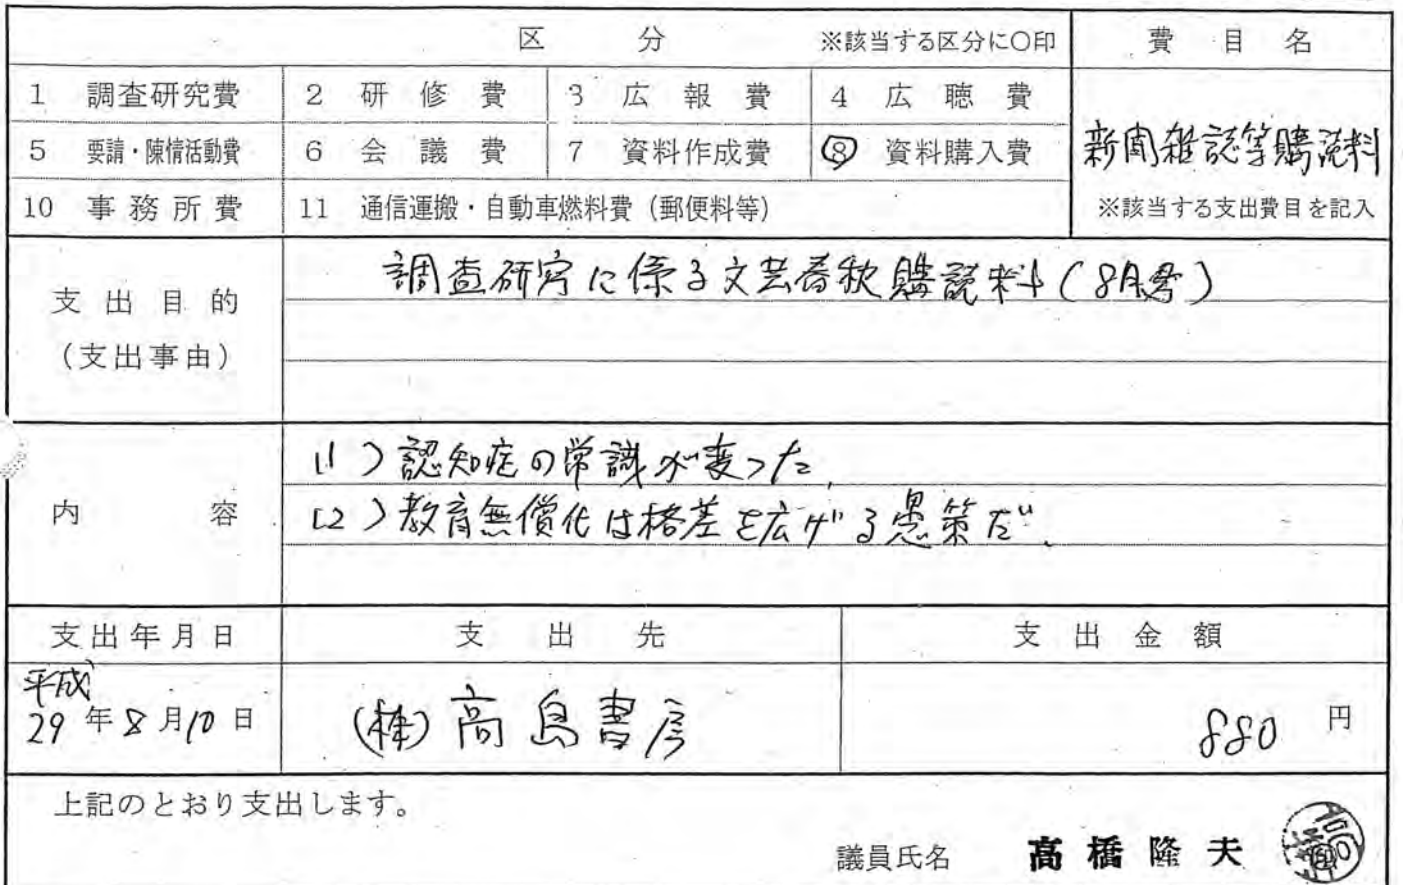 区 分 ※該当する区分に○印 費目名
1 調査研究費 2 研修費 3 広報費 4 広聴費
5 要請・陳情活動費 6 会議費 7 資料作成費 ⑧ 資料購入費
新聞雑誌等購読料
10 事務所費 11 通信運搬・自動車燃料費(郵便料等) ※該当する支出費目を記入
支出目的
(支出事由)
調査研究に係る文芸春秋購読料(8月号)
内容
(1)認知症の常識が変った。
(2)教育無償化は格差を広げる愚策だ。
支出年月日 支出先 支出金額
平成
29年8月10日 (株)高島書房 880円
上記のとおり支出します。
議員氏名 髙橋隆夫